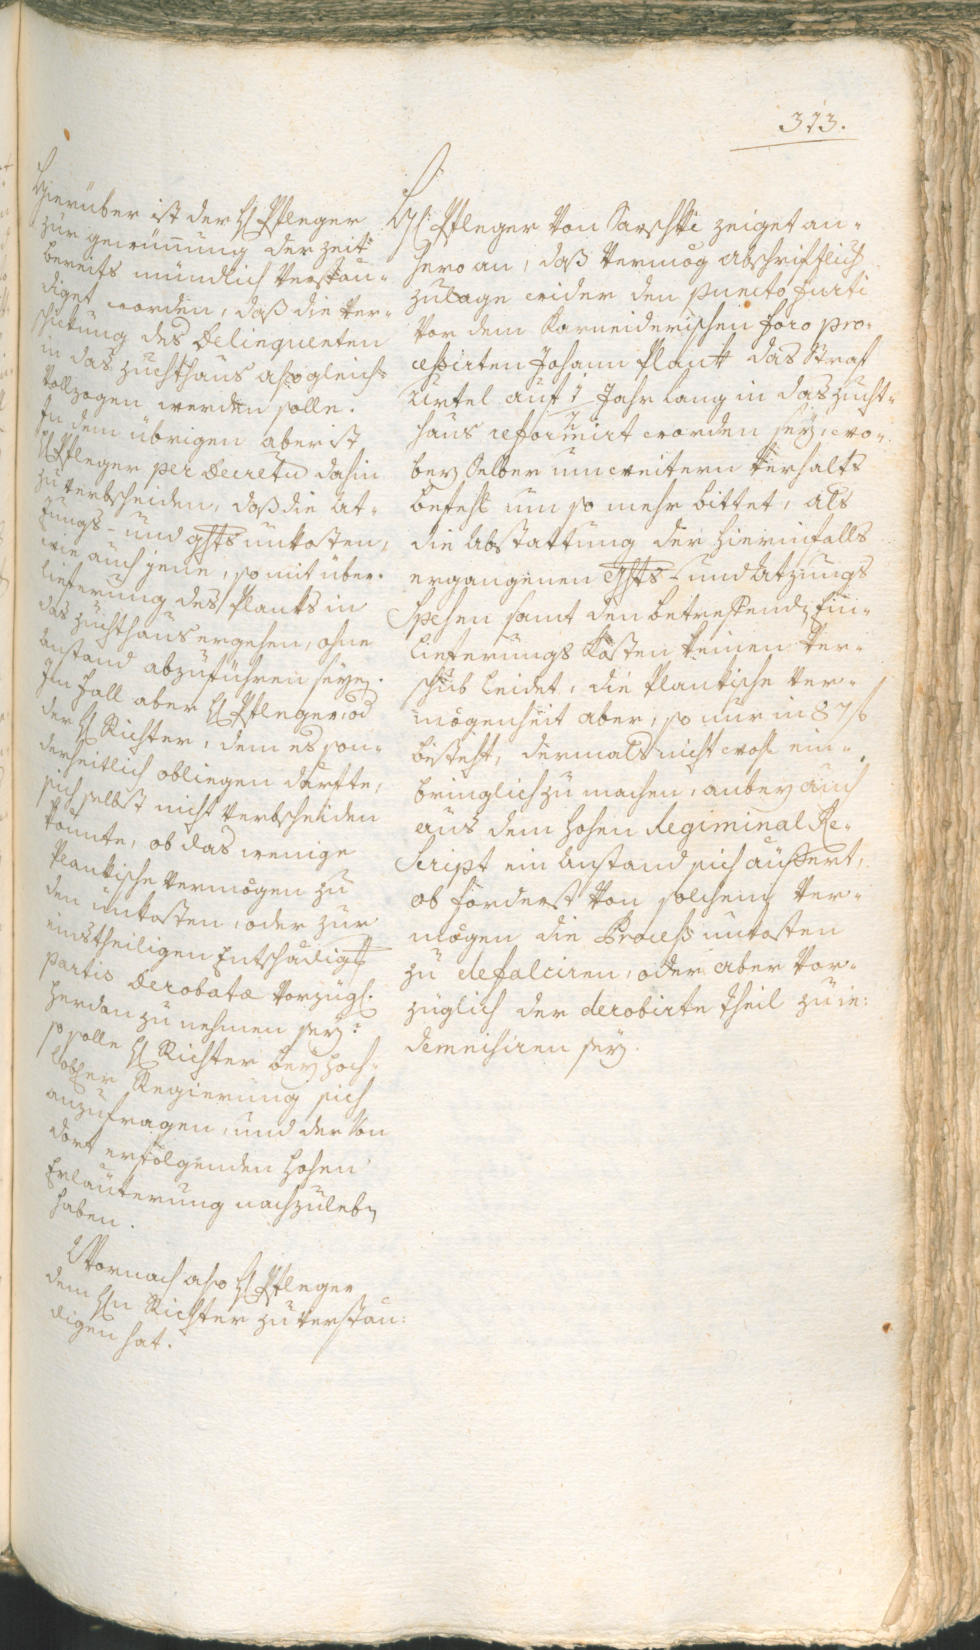 313.
Hierüber ist der H Pfleger
zur gewinnung der zeit
bereits mündlich verstän-
diget worden, daß die ver-
schickung des Delinquenten
in das zuchthaus also gleich
vollzogen werden solle.
In dem übrigen aber ist
H Pfleger per Decretu dahin
zu verbscheiden, daß die At-
zungs- und ghts unkosten,
wie auch jene, so mit über-
lieferung des Plankts in
das zuchthaus ergehen, ohne
Anstand abzuführen seyen.
Im fall aber H Pfleger, od
der H Richter, dem es son-
derheitlich obliegen därfte,
sich selbst nicht verbscheiden
könnte, ob das wenige
Plankische vermögen zu
den unkosten, oder zur
einstheiligen Entschädig
partis Derobatæ vorzügl.
herdan zu nehmen sey:
so solle H Richter bey hoch-
lobher Regierung sich
anzufragen, und der von
dort erfolgenden hohen
Erläuterung nachzuleben
haben.
Wornach also H Pfleger
dem Hn Richter zu verstän-
digen hat.
H: Pfleger von Sarschke zeiget an-
hero an, daß vermög abschriftlich
zulage wider den puncto furti
vor dem Karneiderischen foro pro-
cessirten Johann Plankt das Straf
Urtel auf 1 Jahr lang in das zucht-
haus reformirt worden sey, wo-
bey Selber um weitern verhalts
befehl um so mehr bittet, als
die Abstattung der hierinfalls
ergangenen ghts- und Atzungs
Spesen samt den betreffenden Ein-
lieferungs Kösten keinen ver-
schub leidet, die Plankische ver-
mögenheit aber, so nur in 87 f
besteht, dermals nicht wohl ein-
bringlich zu machen, anbey auch
aus dem hohen Regiminal Re-
script ein Anstand sich äußert,
ob förderst von solchem ver-
mögen die Process unkosten
zu defalciren, oder aber vor-
züglich der derobirte theil zu in-
demnisiren sey.